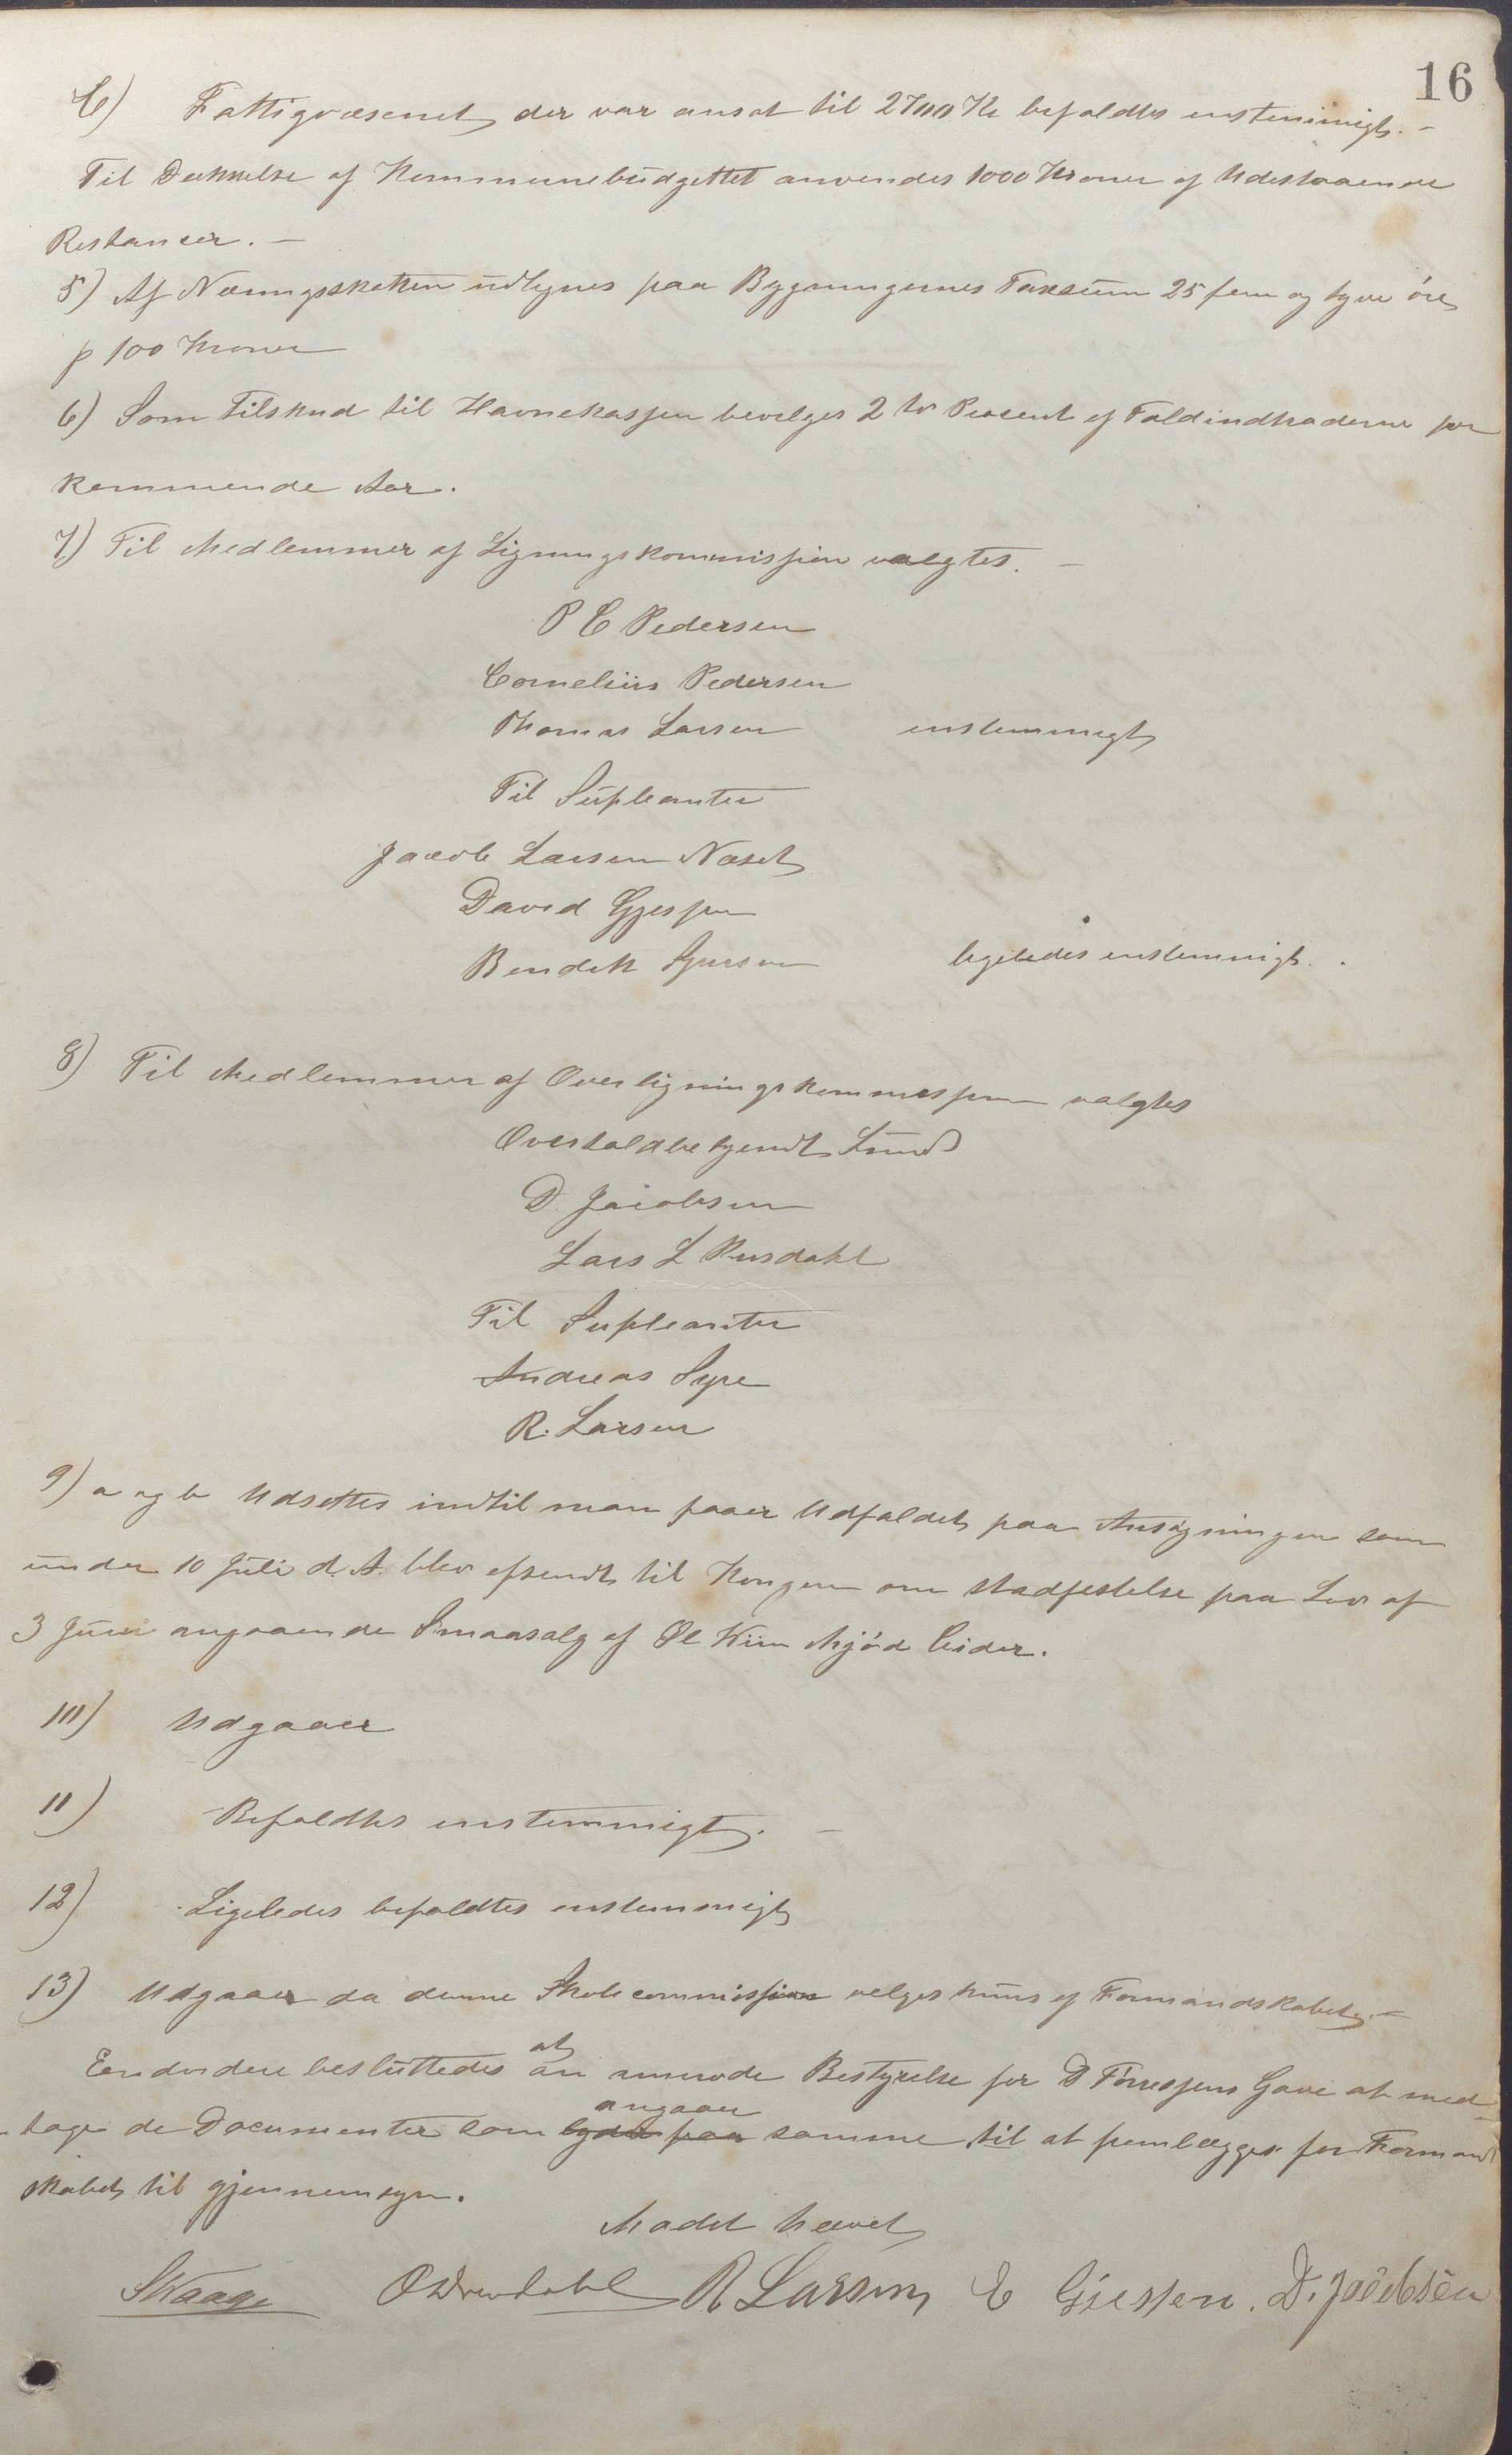 16
C) Fattigvæsenet der var ansat til 2700 Kr befaldtes enstemmigt. –
Til Dækkelse af Kommunebudgettet anvendes 1000 Kroner af Udestaaende
Restancer. –
5) Af Næringsskatten udlignes paa Bygningernes Taxsum 25 fem og tyve öre
p 100 Kroner
6) Som Tilskud til Havnekassen bevilges 2 to Procent af Toldindtraderne for
kommende Aar.
7) Til Medlemmer af Ligningskommissjon valgtes. –
P C Pedersen
Cornelius Pedersen
Thomas Larsen enstemmigt
Til Supleanter
Jacob Larsen Næset
David Gjessen
Bendik Syresen ligeledes enstemmigt.
8) Til Medlemmer af Overligningskommissjonen valgtes
Overtoldbetjendt Lund
D. Jacobsen
Lars L Rusdahl
Til Supleanter
Andreas Syre
R. Larsen
9) a og b Udsettes indtil man faaer Udfaldet paa Ansøgningen som
under 10 Juli d. A. blev afsendt til Kongen om stadfestelse paa Lov af
3 Juni angaaende Smaasalg af Øl Viin Mjöd Cider.
10) Udgaaer
11) Befaldtes enstemmigt. –
12) Ligeledes befaldtes enstemmigt
13) Udgaaer da denne Skolecommissjon velges kuns af Formandskabet. –
Endvidere besluttedes at an mode Bestyrelse for D Törressens Gave at med-
angaaer
tage de Documenter som lyder paa samme til at fremlægges for Formand
skabet til gjennemsyn.
Mödet hævet
S Waage O Drevdahl R Larsen E Giessen. D. Jacobsen